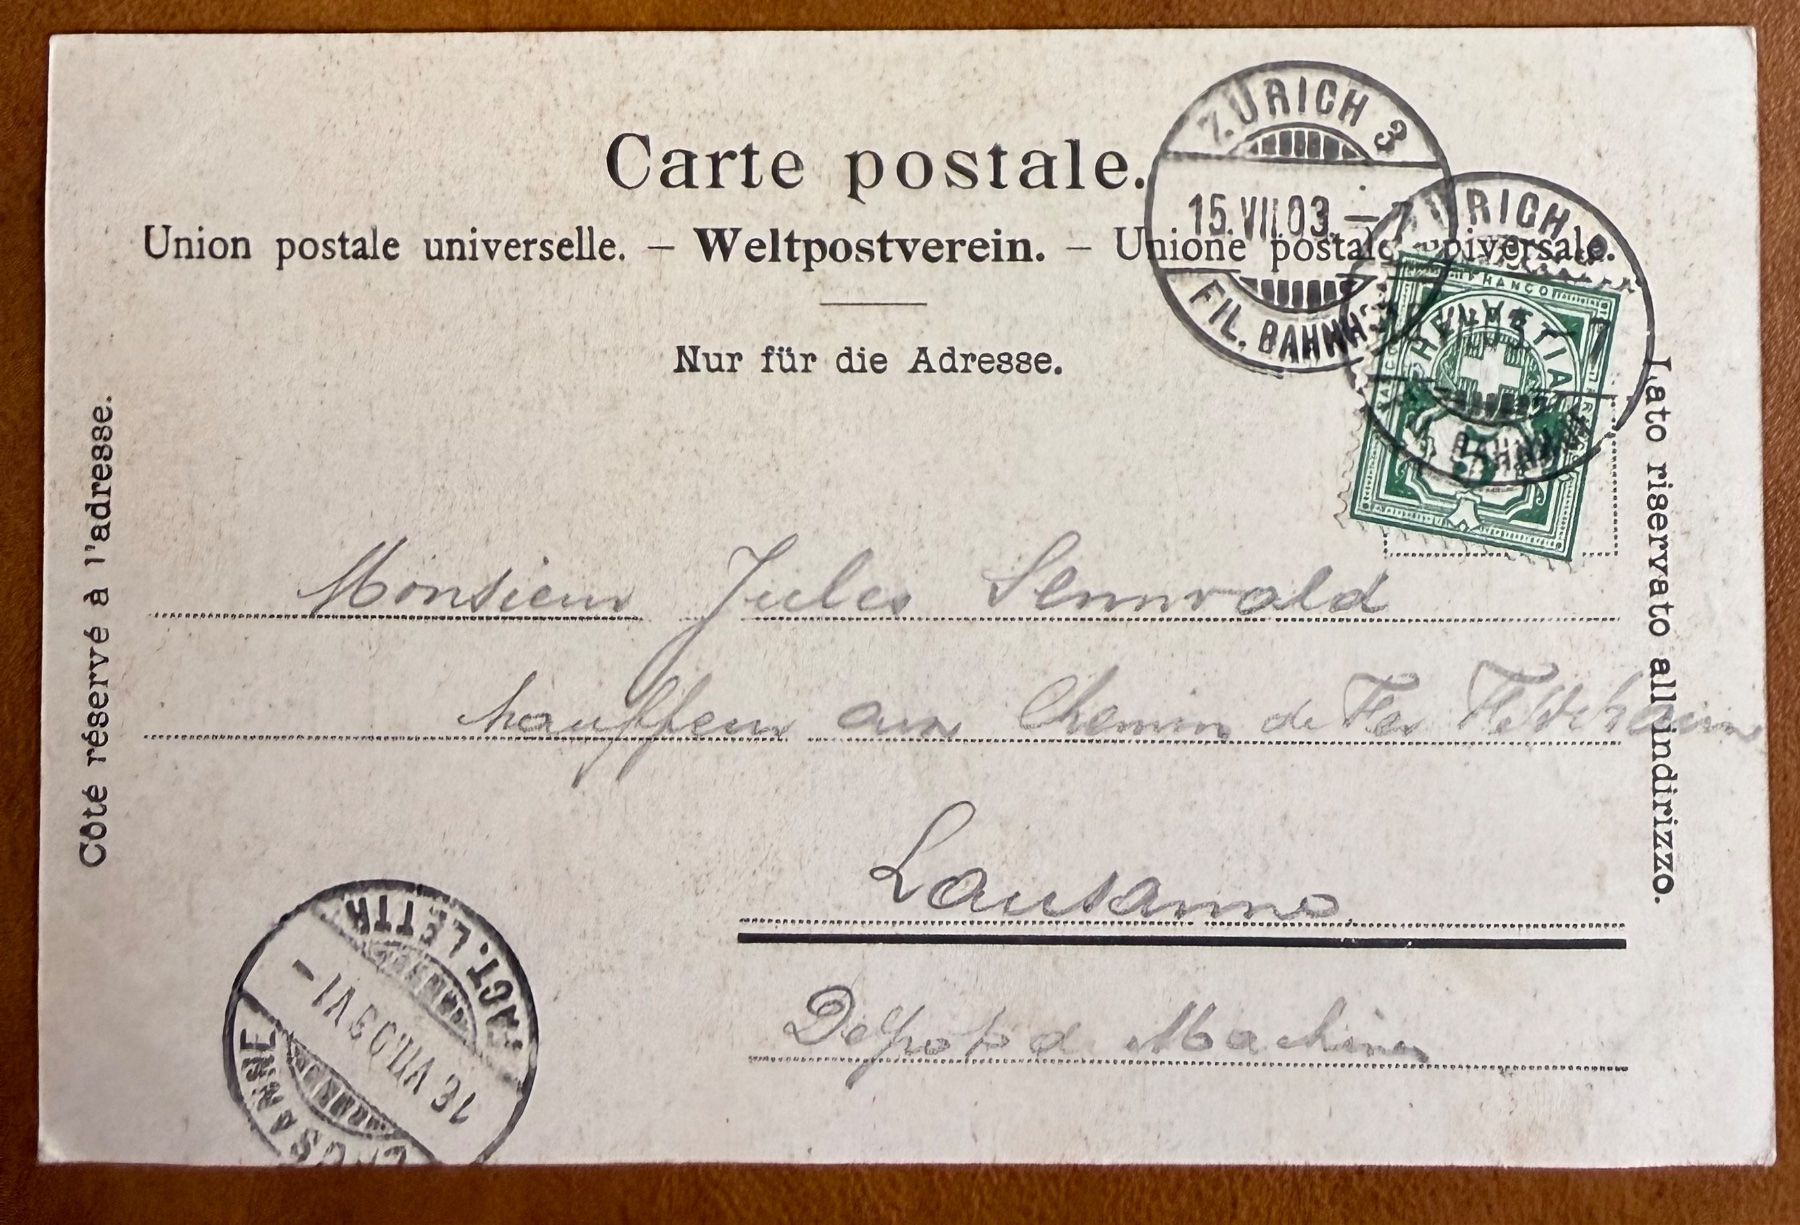 Carte postale.
Union postale universelle. – Weltpostverein. – Unione postale universale.
Nur für die Adresse.
Côté réservé à l'adresse.
Lato riservato all'indirizzo.
ZÜRICH 3
15.VII.03.–7
FIL. BAHNH
ZÜRICH
7
BAHNHOF
FRANCO
HELVETIA
5
Monsieur Jules Sennwald
chauffeur aux Chemin de Fer
Lausanne
Depot d Machines
LAUSANNE
16 VII.03 VI–
LETTR